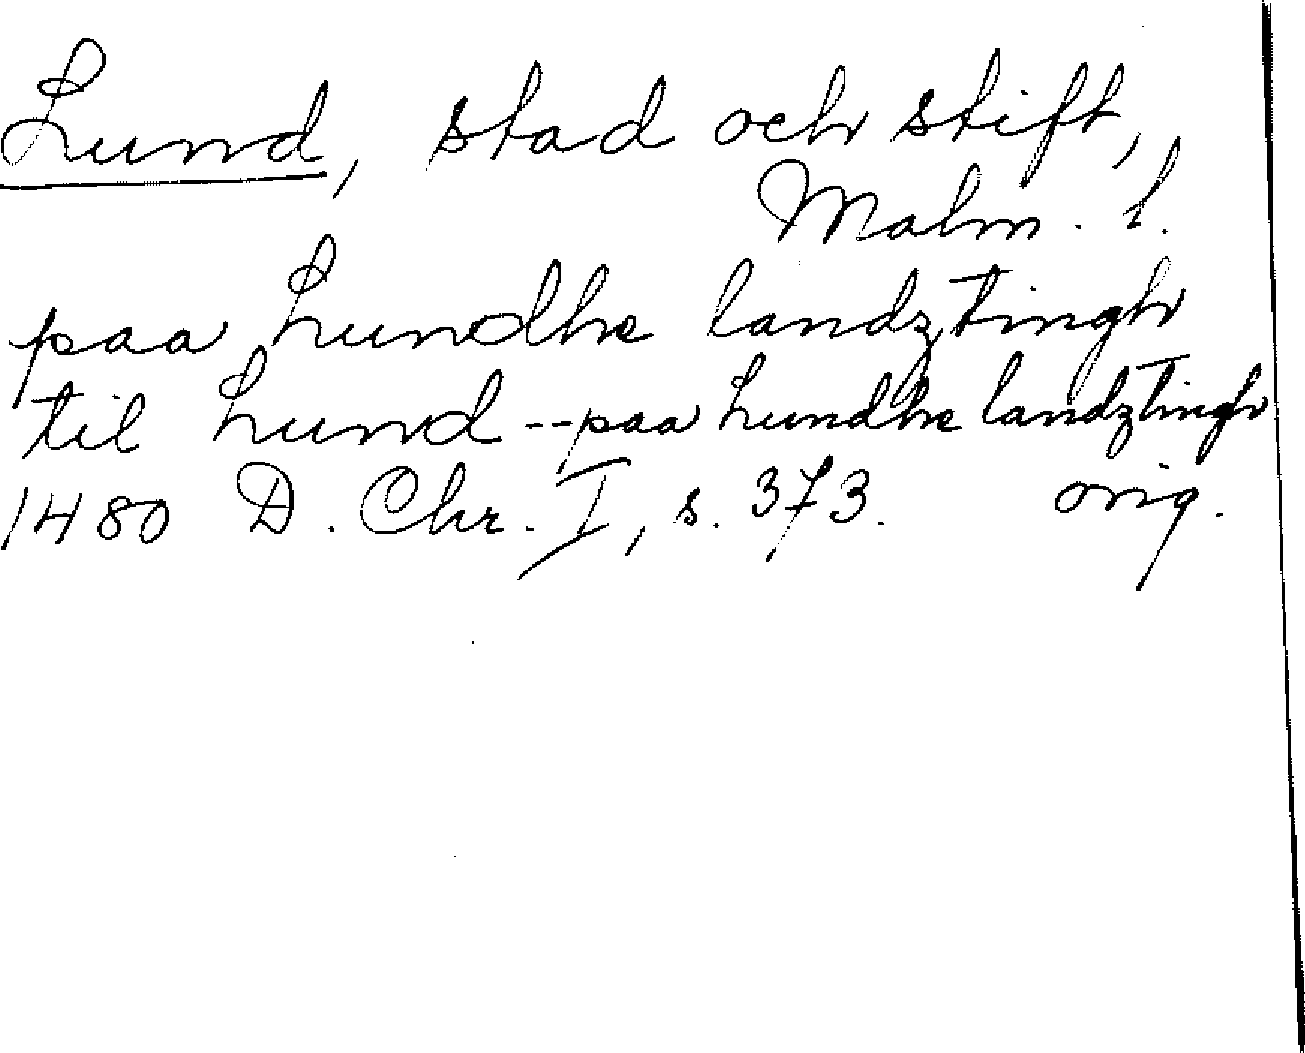 Lund, stad och stift,
Malm. l.
paa Lundhe landztingh
til Lund -- paa Lundhe landztingh
1480 D. Chr. I, s. 373. orig.